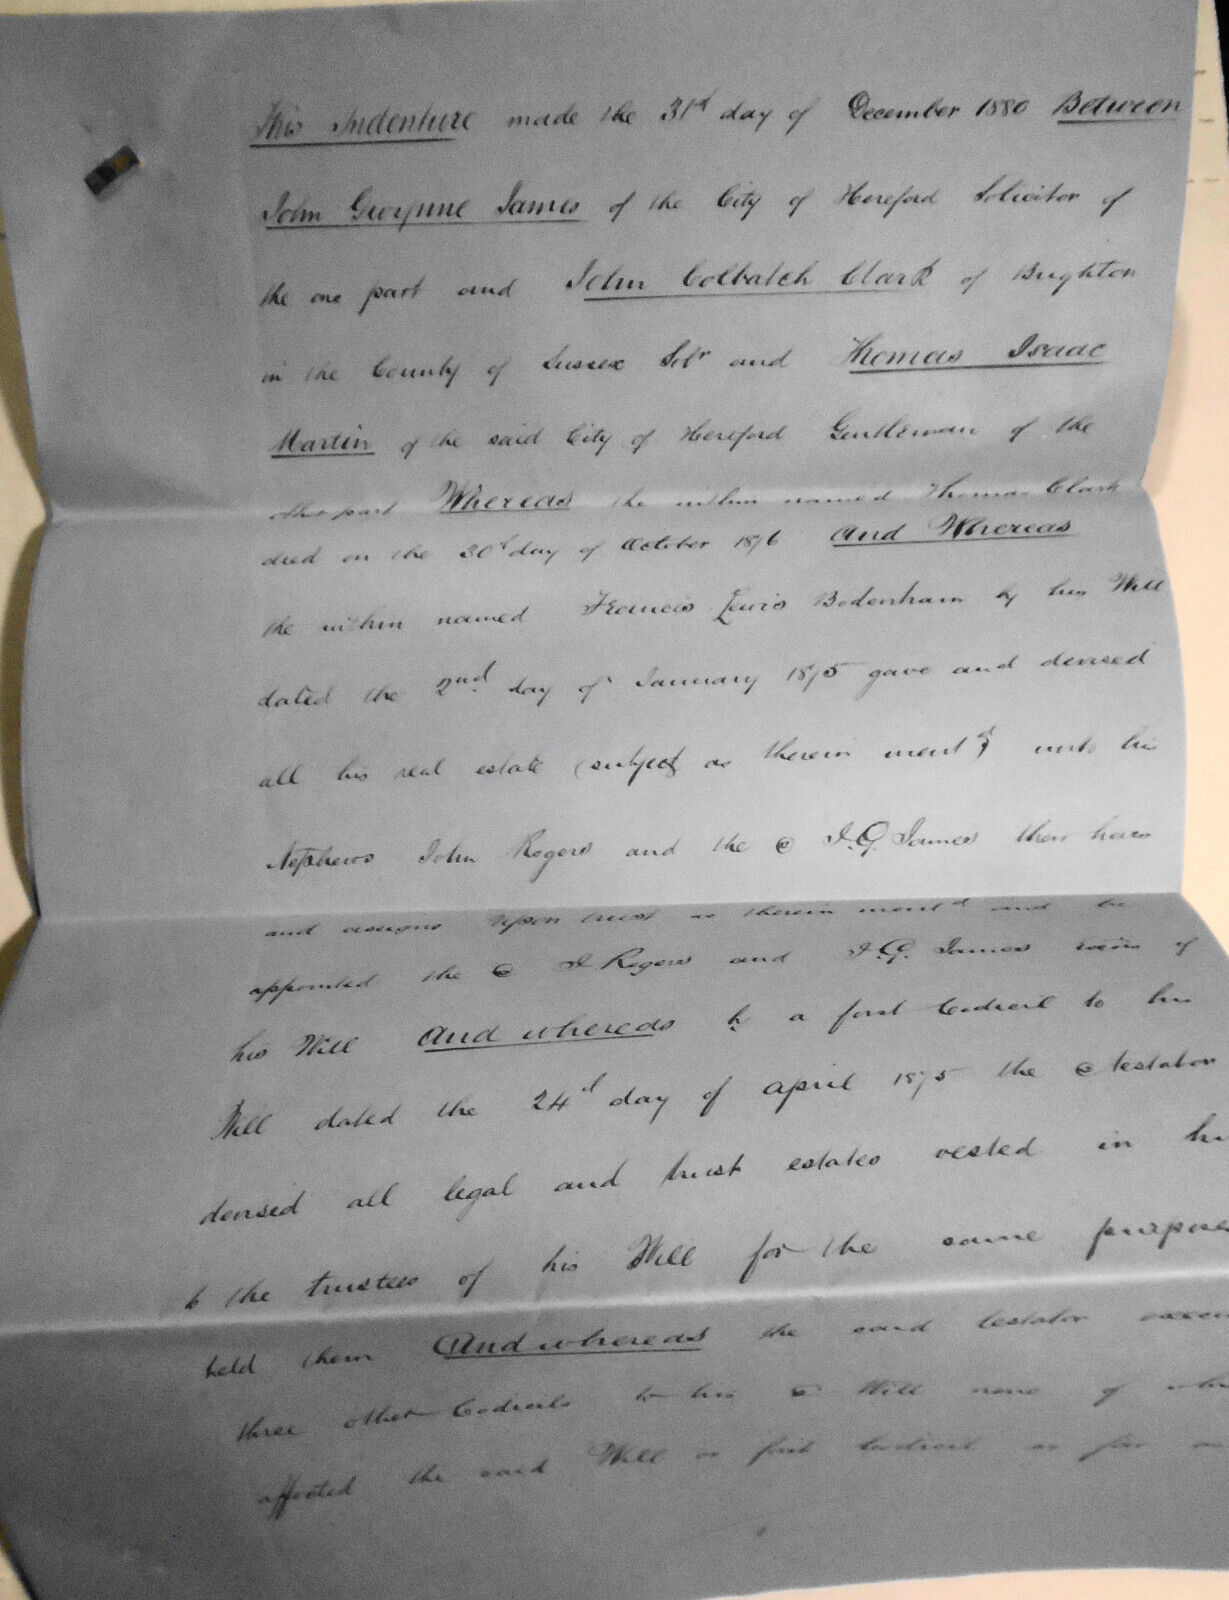 This Indenture made the 31st day of December 1880 Between
John Gwynne James of the City of Hereford Solicitor of
the one part and John Colbatch Clark of Brighton
in the County of Sussex Solr and Thomas Isaac
Martin of the said City of Hereford Gentleman of the
other part Whereas the within named Thomas Clark
died on the 30th day of October 1876 And Whereas
the within named Francis Lewis Bodenham by his Will
dated the 2nd day of January 1875 gave and devised
all his real estate (subject as therein mentd) unto his
Nephews John Rogers and the s J. G. James their heirs
and assigns upon trust as therein mentd and he
appointed the s J Rogers and J. G. James exors of
his Will And whereas by a first Codicil to his
Will dated the 24th day of April 1875 the s testator
devised all legal and trust estates vested in
to the trustees of his Will for the same
held them And whereas the said testator
three other Codicils to his s Will none of
affected the said Will or first Codicil so far